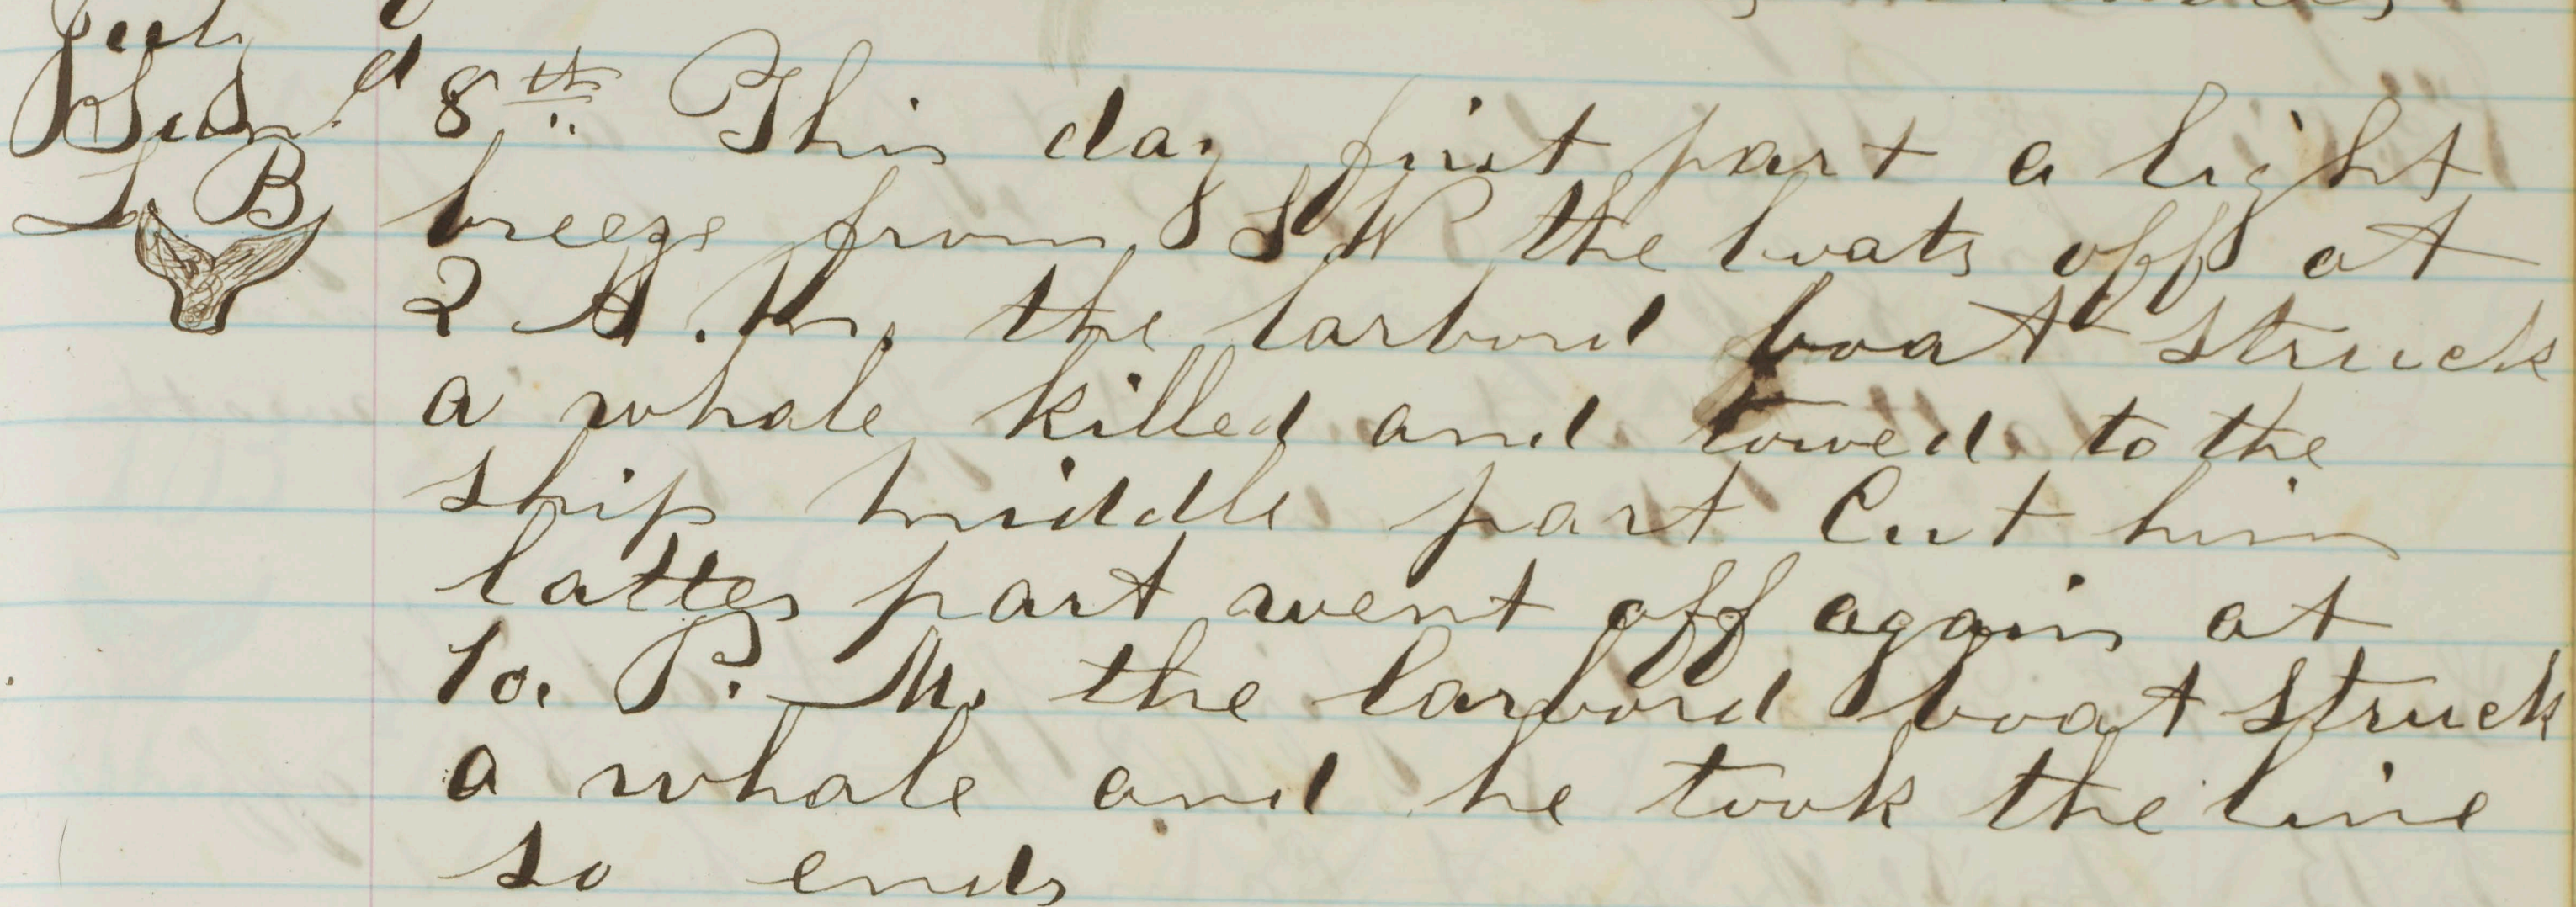 July
Wed. 8th This day first part a light
L. B breeze from S W the boats off at
2 A. M. the larbord boat struck
a whale killed and towed to the
ship middle part Cut him
latter part went off again at
10. P. M. the larbord boat struck
a whale and he took the line
so ends